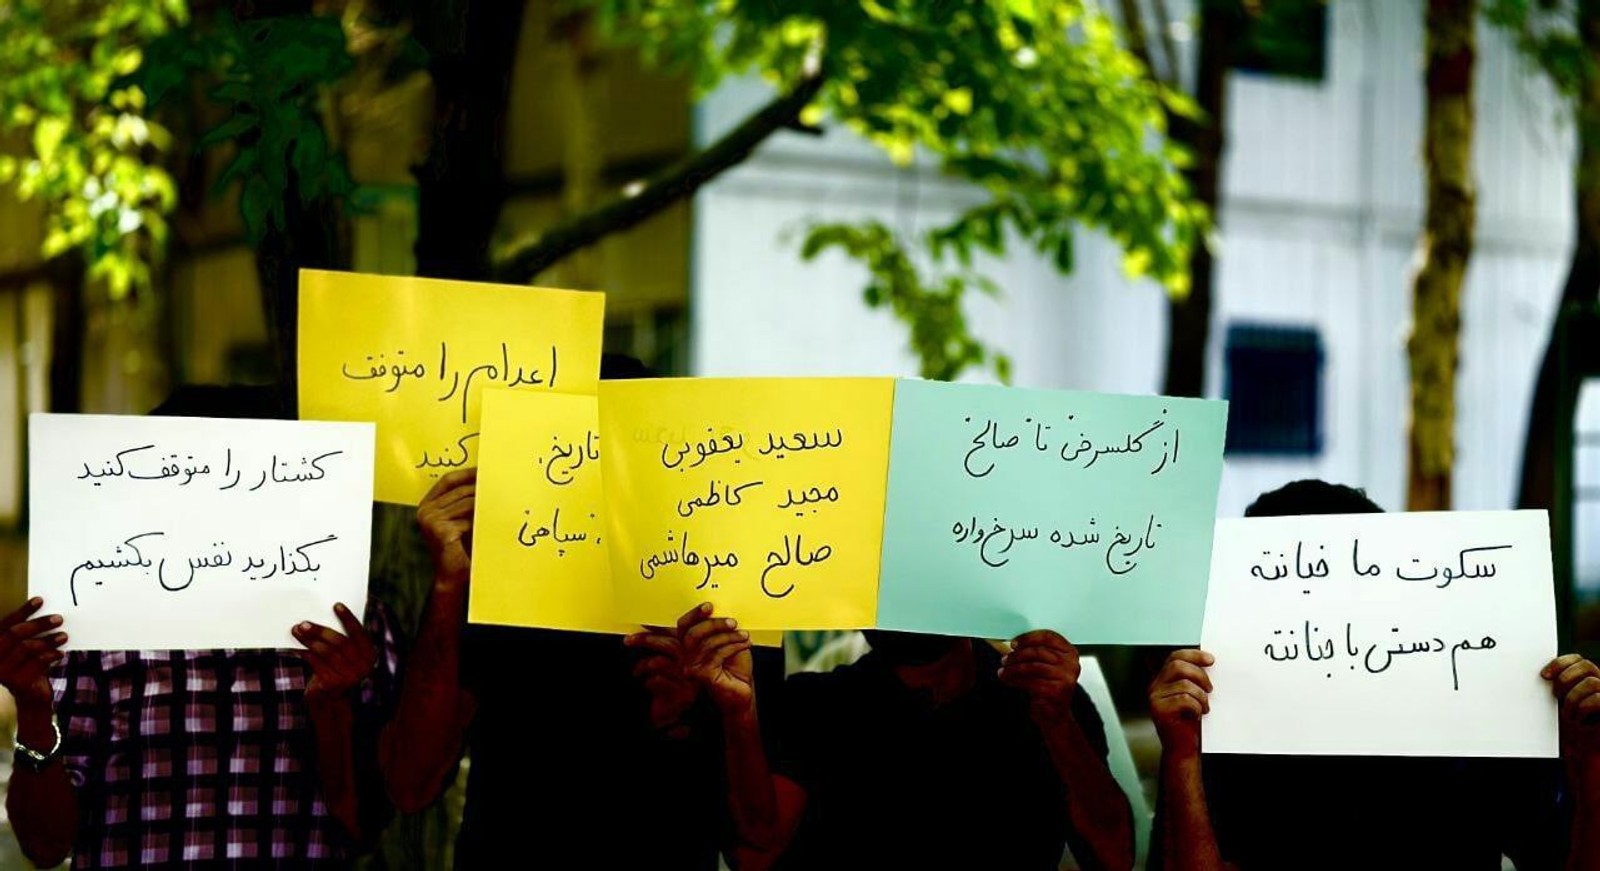 کشتار را متوقف کنید
بگذارید نفس بکشیم
اعدام را متوقف
کنید
تاریخ،
سپاهی
سعید یعقوبی
مجید کاظمی
صالح میرهاشمی
از گلسرخی تا صالح
تاریخ شده سرخ‌واره
سکوت ما خیانته
هم‌دستی با جنایته